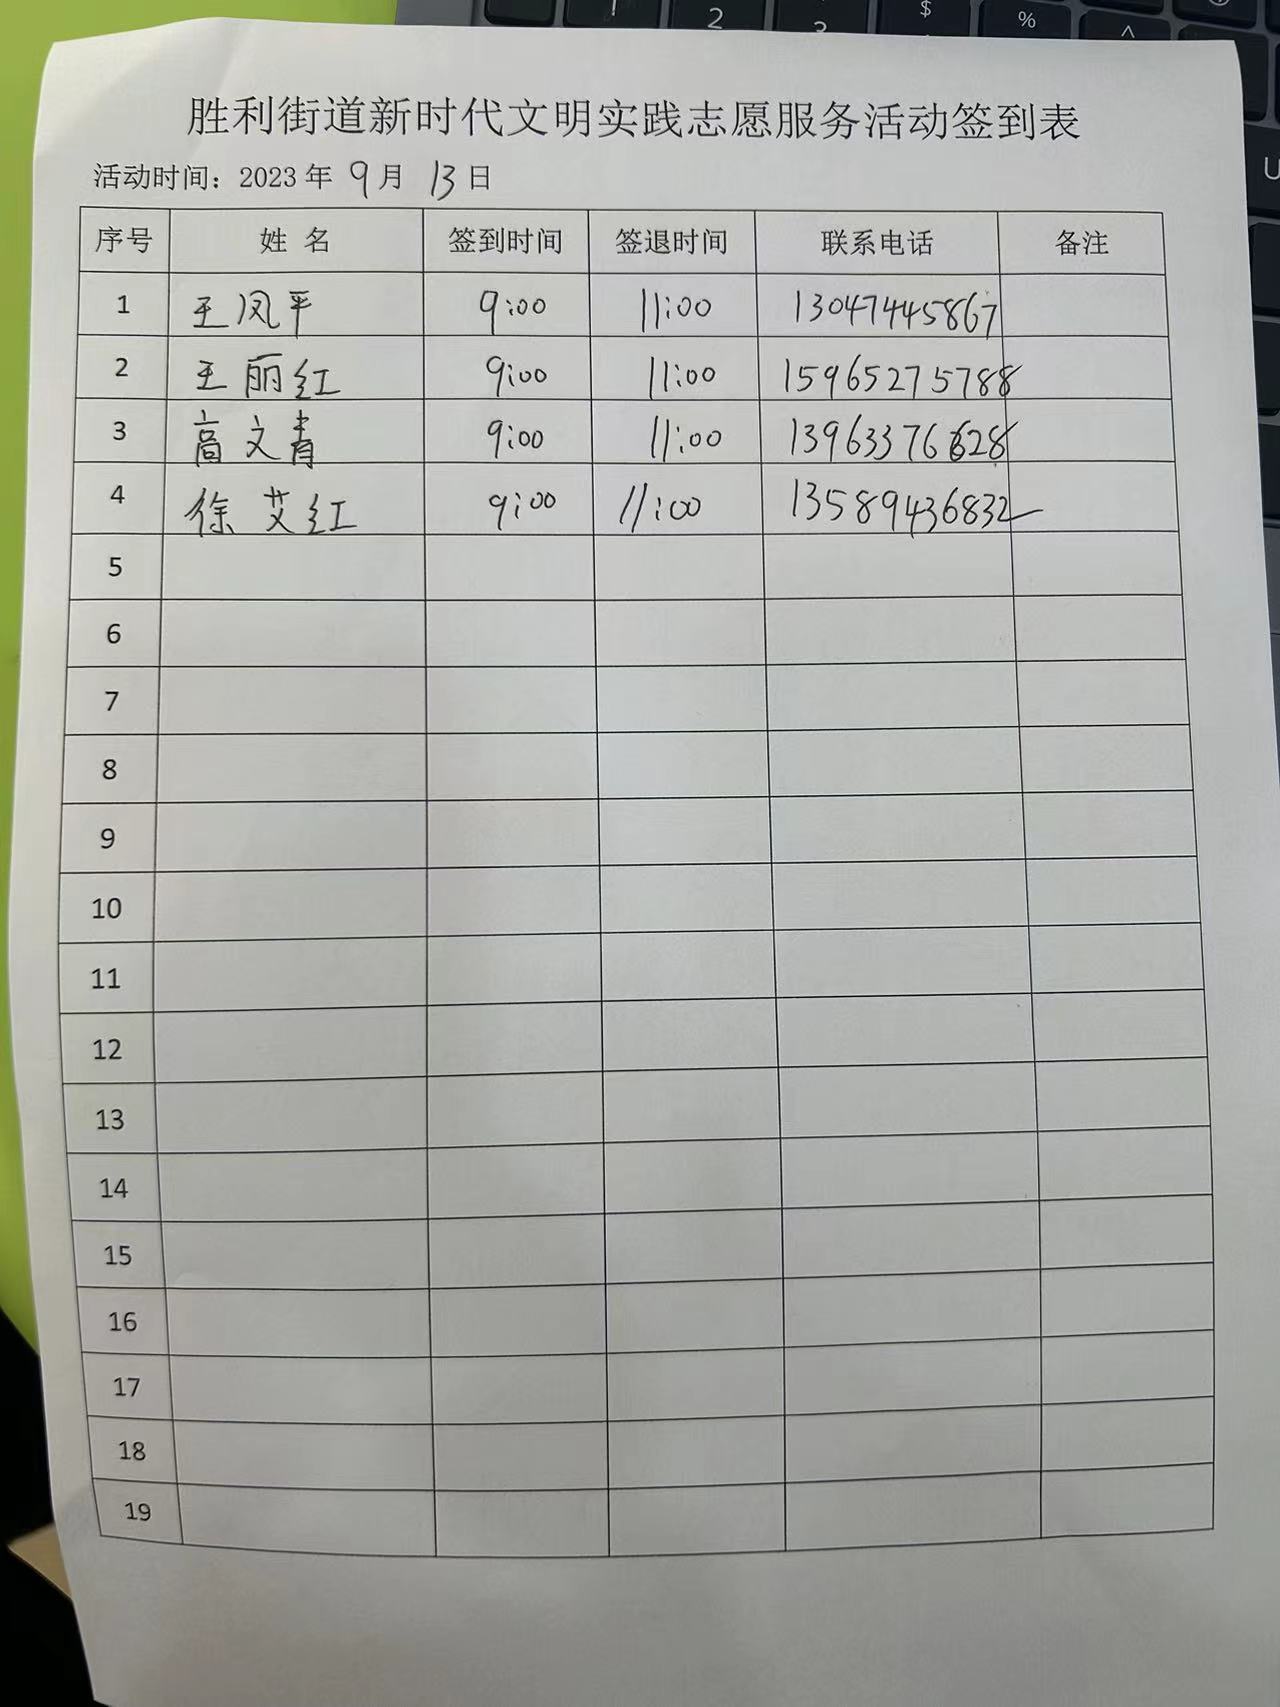 胜利街道新时代文明实践志愿服务活动签到表
活动时间：2023 年 9 月 13 日
序号 姓 名 签到时间 签退时间 联系电话 备注
1 王凤平 9:00 11:00 13047445867
2 王丽红 9:00 11:00 15965275788
3 高文青 9:00 11:00 13963376628
4 徐艾红 9:00 11:00 13589436832
5
6
7
8
9
10
11
12
13
14
15
16
17
18
19